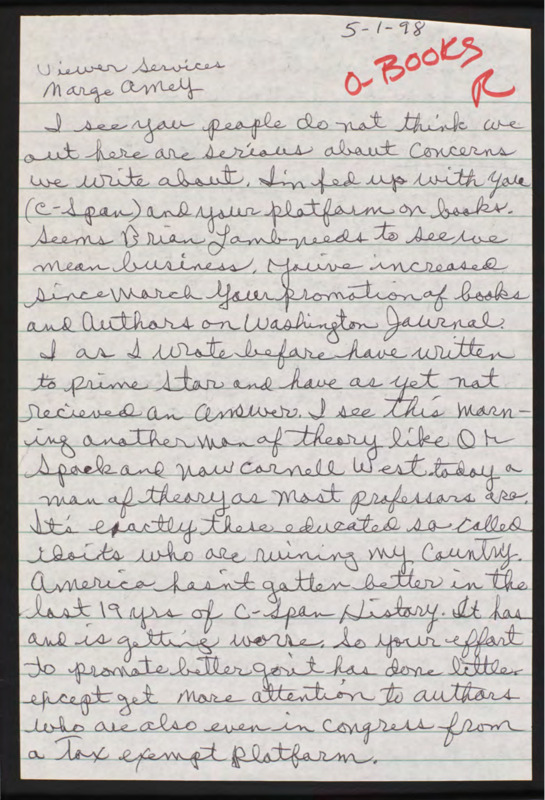 5-1-98
Viewer Services
O-BOOKS
Marge Amey
R
I see you people do not think we
out here are serious about concerns
we write about. I'm fed up with you
(C-Span) and your platform on books.
Seems Brian Lamb needs to see we
mean business. You've increased
since March your promotion of books
and Authors on Washington Journal.
I as I wrote before have written
to prime Star and have as yet not
recieved an answer. I see this morn-
ing another man of theory like Dr
Spock and now Cornell West today a
man of theory as most professors are.
It's exactly these educated so called
idoits who are ruining my Country.
America hasn't gotten better in the
last 19 yrs of C-Span History. It has
and is getting worse. So your effort
to promote better gov't has done little
except get more attention to authors
who are also even in Congress from
a Tax exempt platform.